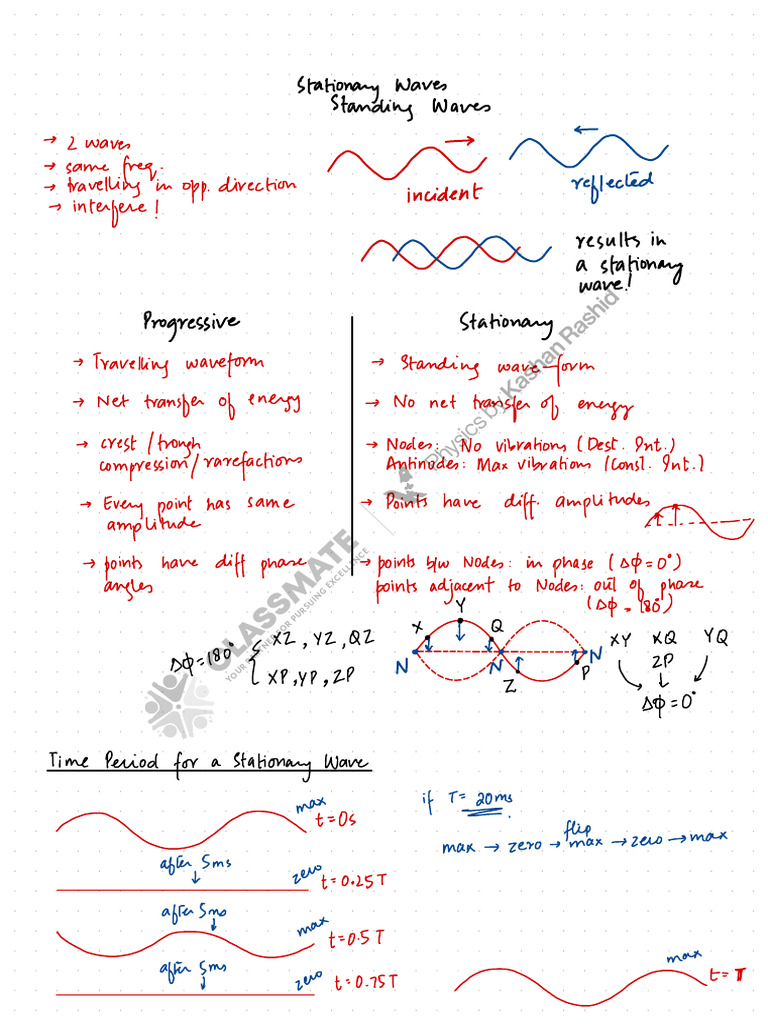 Stationary Waves
Standing Waves
→ 2 waves
→ same freq.
→ travelling in opp. direction
→ interfere!
incident
reflected
results in
a stationary
wave!
Progressive
→ Travelling waveform
→ Net transfer of energy
→ crest/trough
compression/rarefactions
→ Every point has same
amplitude
→ points have diff phase
angles
Stationary
→ Standing wave-form
→ No net transfer of energy
→ Nodes: No vibrations (Dest. Int.)
Antinodes: Max vibrations (Const. Int.)
→ Points have diff. amplitudes
→ points b/w Nodes: in phase (Δϕ=0°)
points adjacent to Nodes: out of phase
(Δϕ=180°)
Δϕ=180° { XZ, YZ, QZ
XP, YP, ZP
X Y Q
N N N
Z P
XY XQ YQ
ZP
Δϕ=0°
Time Period for a Stationary Wave
max
t=0s
after 5ms
zero
t=0.25T
after 5ms
max
t=0.5T
after 5ms
zero
t=0.75T
if T= 20ms
flip
max → zero → max → zero → max
max
t=T
Physics by Kashan Rashid
CLASSMATE
YOUR PARTNER FOR PURSUING EXCELLENCE